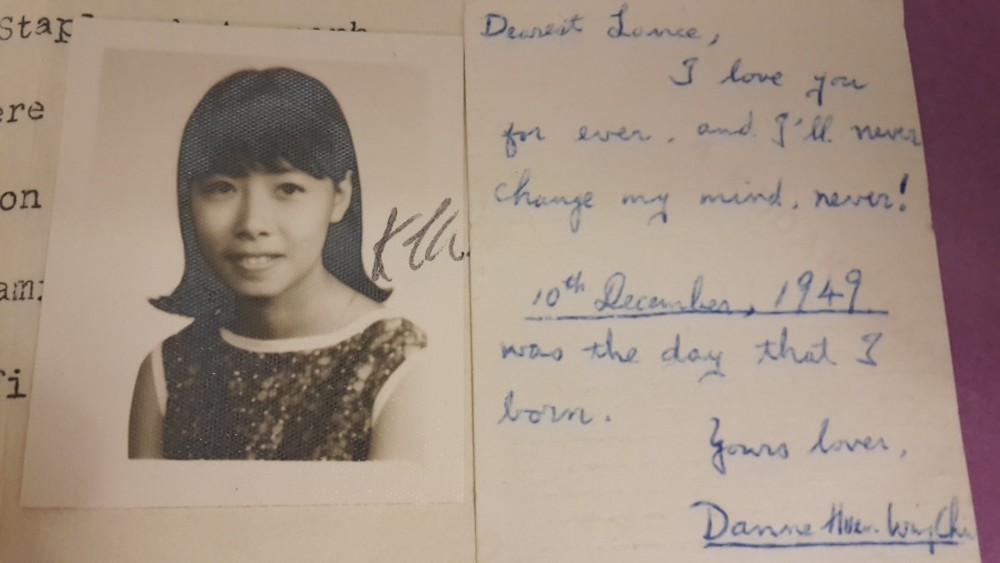 Stap
ere
on
am
Dearest Lance,
I love you
for ever, and I'll never
change my mind, never!
10th December, 1949
was the day that I
born.
Yours lover,
Danne